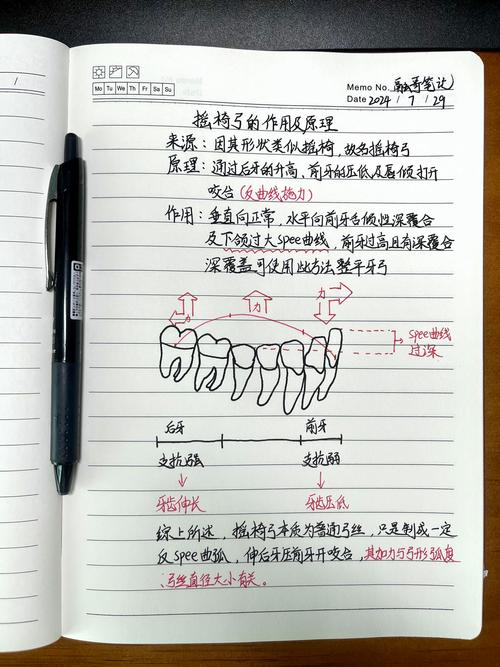 Memo No. 融哥笔记
Mo Tu We Th Fr Sa Su
Date 2024 / 7 / 29
摇椅弓的作用及原理
来源：因其形状类似摇椅，故名摇椅弓
原理：通过后牙的升高，前牙的压低及唇倾打开
咬合(反曲线施力)
作用：垂直向正常，水平向前牙舌倾性深覆合
及下颌过大spee曲线，前牙过高且有深覆合
深覆盖可使用此方法整平牙弓
力
力
力
spee曲线
过深
后牙
前牙
支抗强
支抗弱
牙齿伸长
牙齿压低
综上所述，摇椅弓本质为普通弓丝，只是制成一定
反spee曲弧，伸后牙压前牙开咬合，其加力与弓形弧度
弓丝直径大小有关。